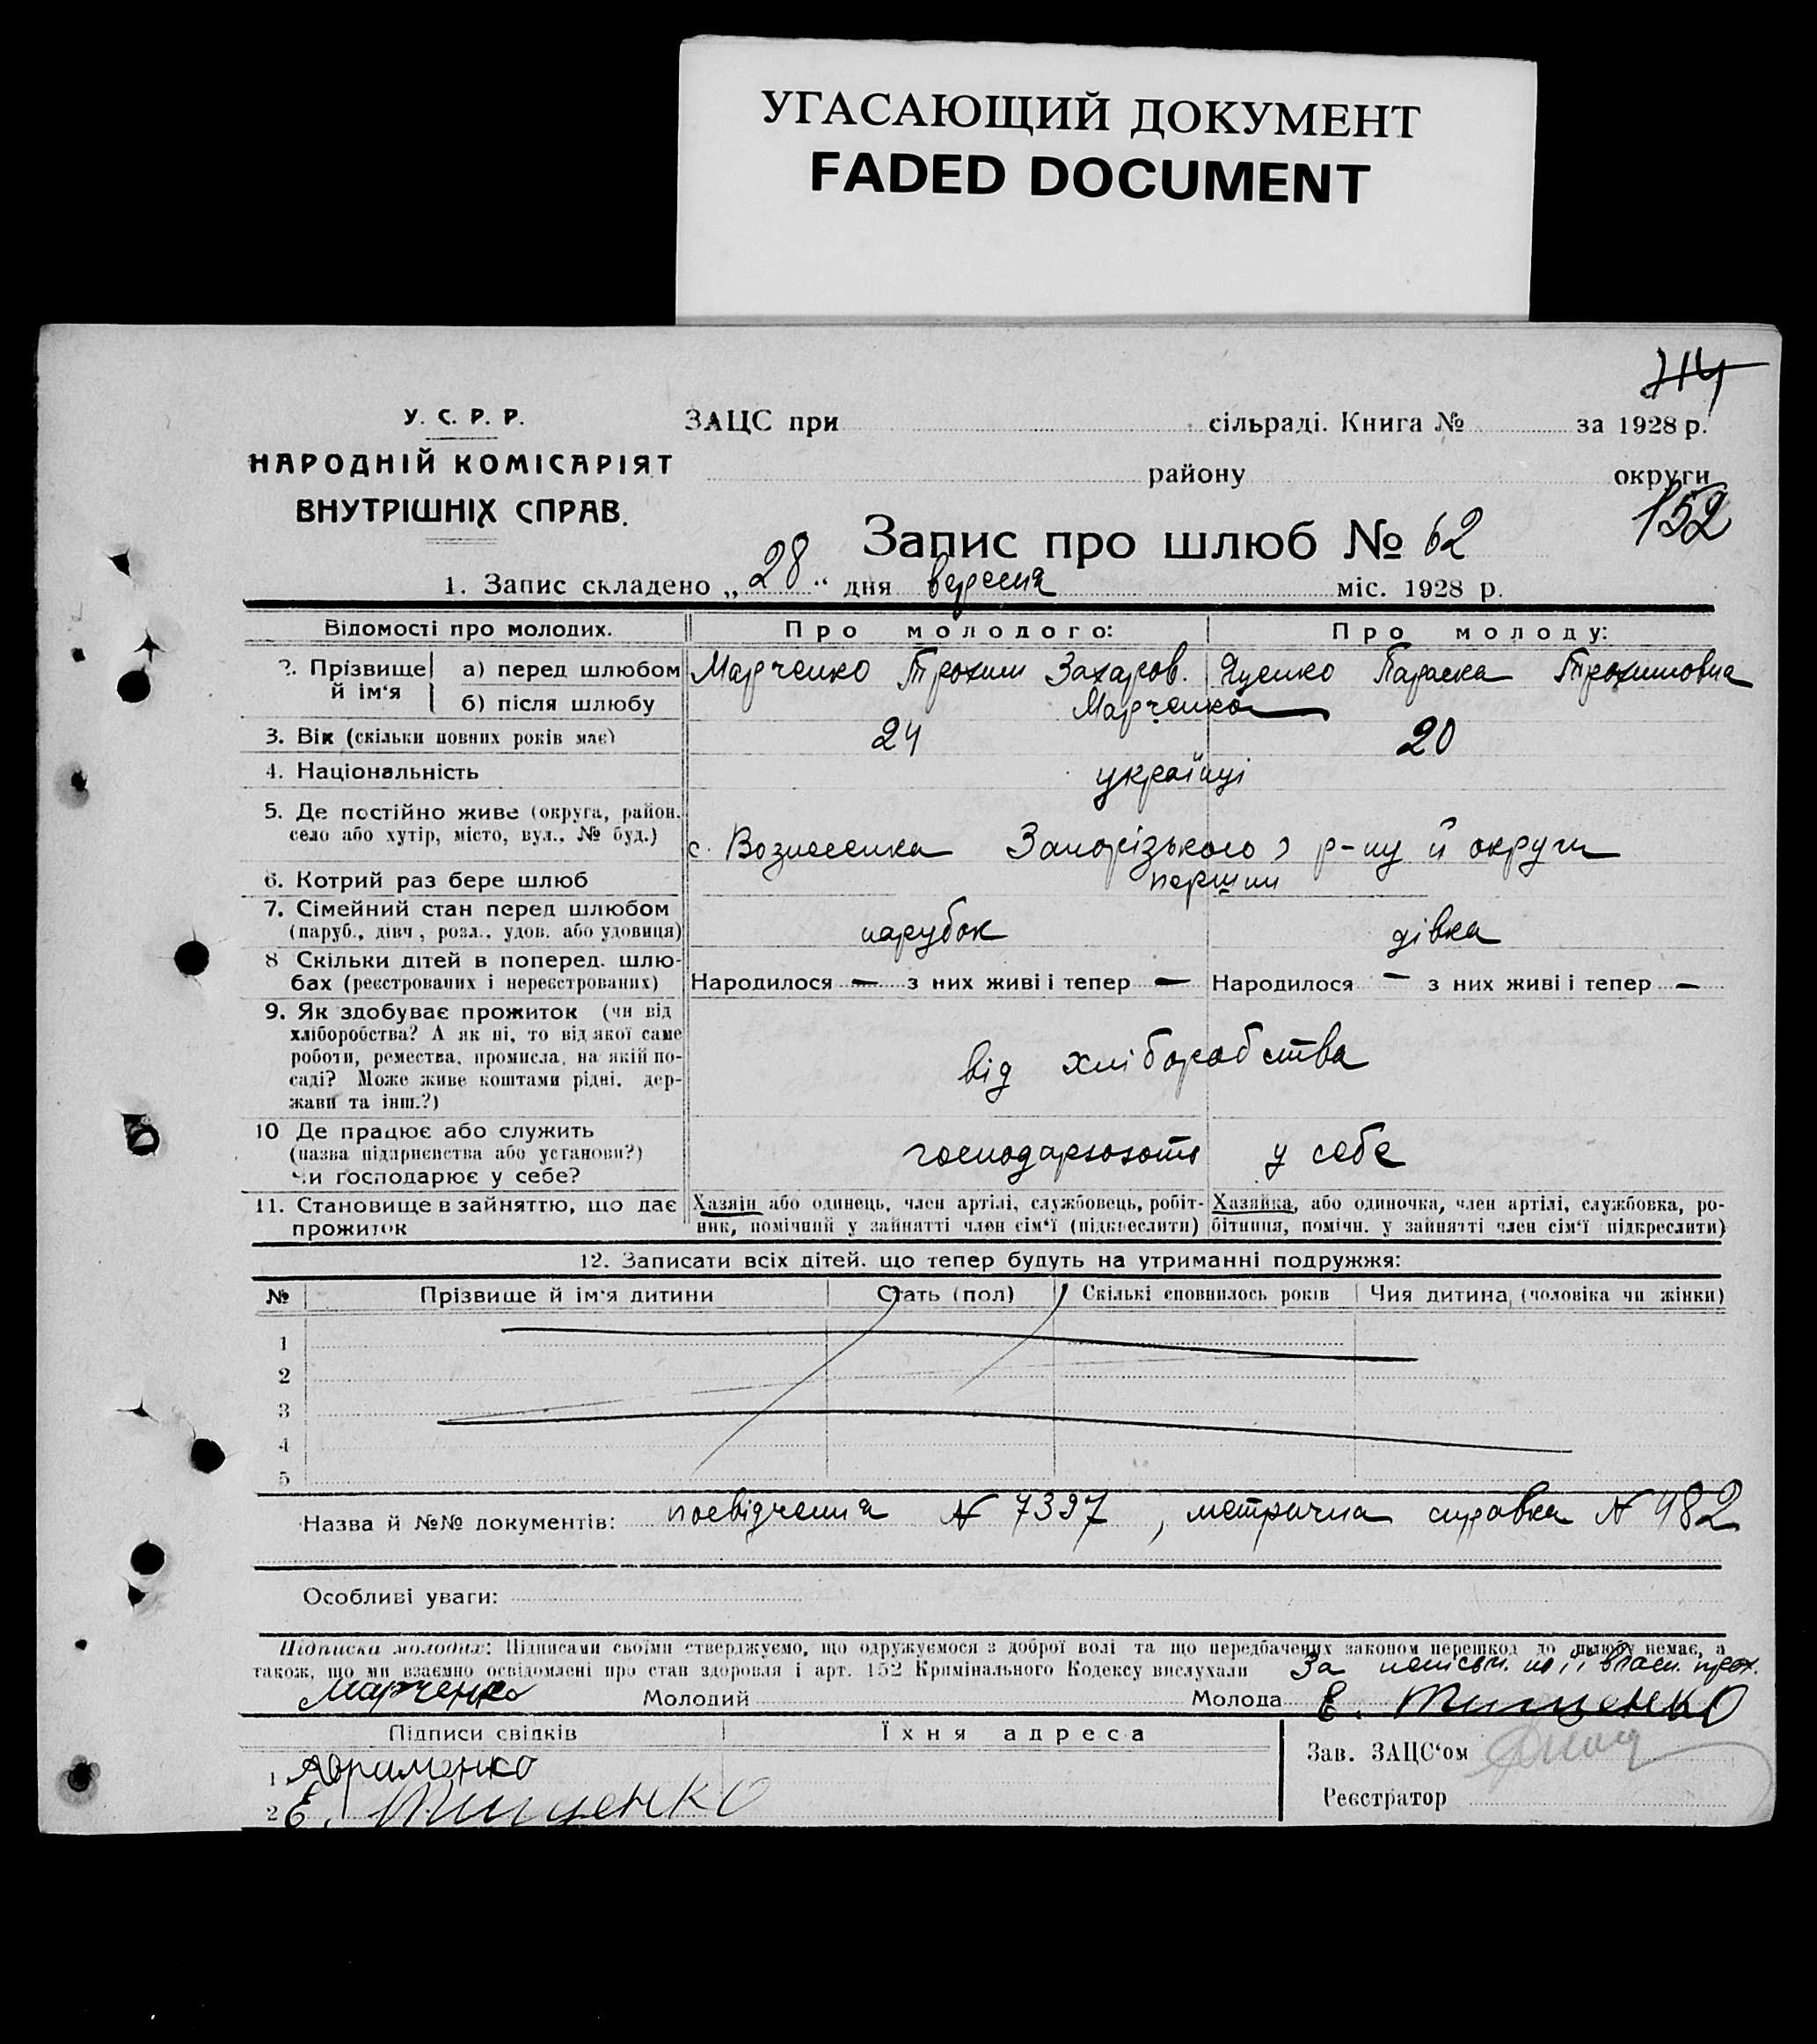 УГАСАЮЩИЙ ДОКУМЕНТ
FADED DOCUMENT
714
У. С. Р. Р.
НАРОДНІЙ КОМІСАРІЯТ
ВНУТРІШНІХ СПРАВ.
ЗАЦС при сільраді. Книга № за 1928 р.
району округи
152
Запис про шлюб № 62
1. Запис складено „28“ дня вересня міс. 1928 р.
Відомості про молодих. Про молодого: Про молоду:
2. Прізвище й ім‘я а) перед шлюбом Марченко Трохим Захаров. Яценко Параска Трохимовна
б) після шлюбу Марченко
3. Вік (скільки повних років має) 24 20
4. Національність українці
5. Де постійно живе (округа, район,
село або хутір, місто, вул., № буд.) с. Вознесенка Запорізького р-ну й округи
6. Котрий раз бере шлюб перший
7. Сімейний стан перед шлюбом
(паруб., дівч., розл., удов. або удовиця) парубок дівка
8 Скільки дітей в поперед. шлю-
бах (реєстрованих і нереєстрованих) Народилося — з них живі і тепер — Народилося — з них живі і тепер —
9. Як здобуває прожиток (чи від
хліборобства? А як ні, то від якої саме
роботи, ремества, промисла, на якій по-
саді? Може живе коштами рідні, дер-
жави та інш.?) від хліборобства
10 Де працює або служить
(назва підприємства або установи?)
Чи господарює у себе? господарюють у себе
11. Становище в зайняттю, що дає
прожиток
Хазяїн або одинець, член артілі, службовець, робіт-
ник, помічний у зайнятті член сім‘ї (підкреслити)
Хазяйка, або одиночка, член артілі, службовка, ро-
бітниця, помічн. у зайнятті член сім‘ї підкреслити)
12. Записати всіх дітей, що тепер будуть на утриманні подружжя:
№ Прізвище й ім‘я дитини Стать (пол) Скількі сповнилось років Чия дитина, (чоловіка чи жінки)
1
2
3
4
5
Назва й №№ документів: посвідчення № 7397, метрична справка № 982
Особливі уваги:
Підписка молодих: Підписами своїми стверджуємо, що одружуємося з доброї волі та що передбачених законом перешкод до шлюбу немає, а
також, що ми взаємно освідомлені про стан здоровля і арт. 152 Кримінального Кодексу вислухали За неписьм. по її власн. прох.
Марченко Молодий Молода Е. Тищенко
Підписи свідків Їхня адреса
Зав. ЗАЦС‘ом
1 Авраменко
Реєстратор
2 Е. Тищенко